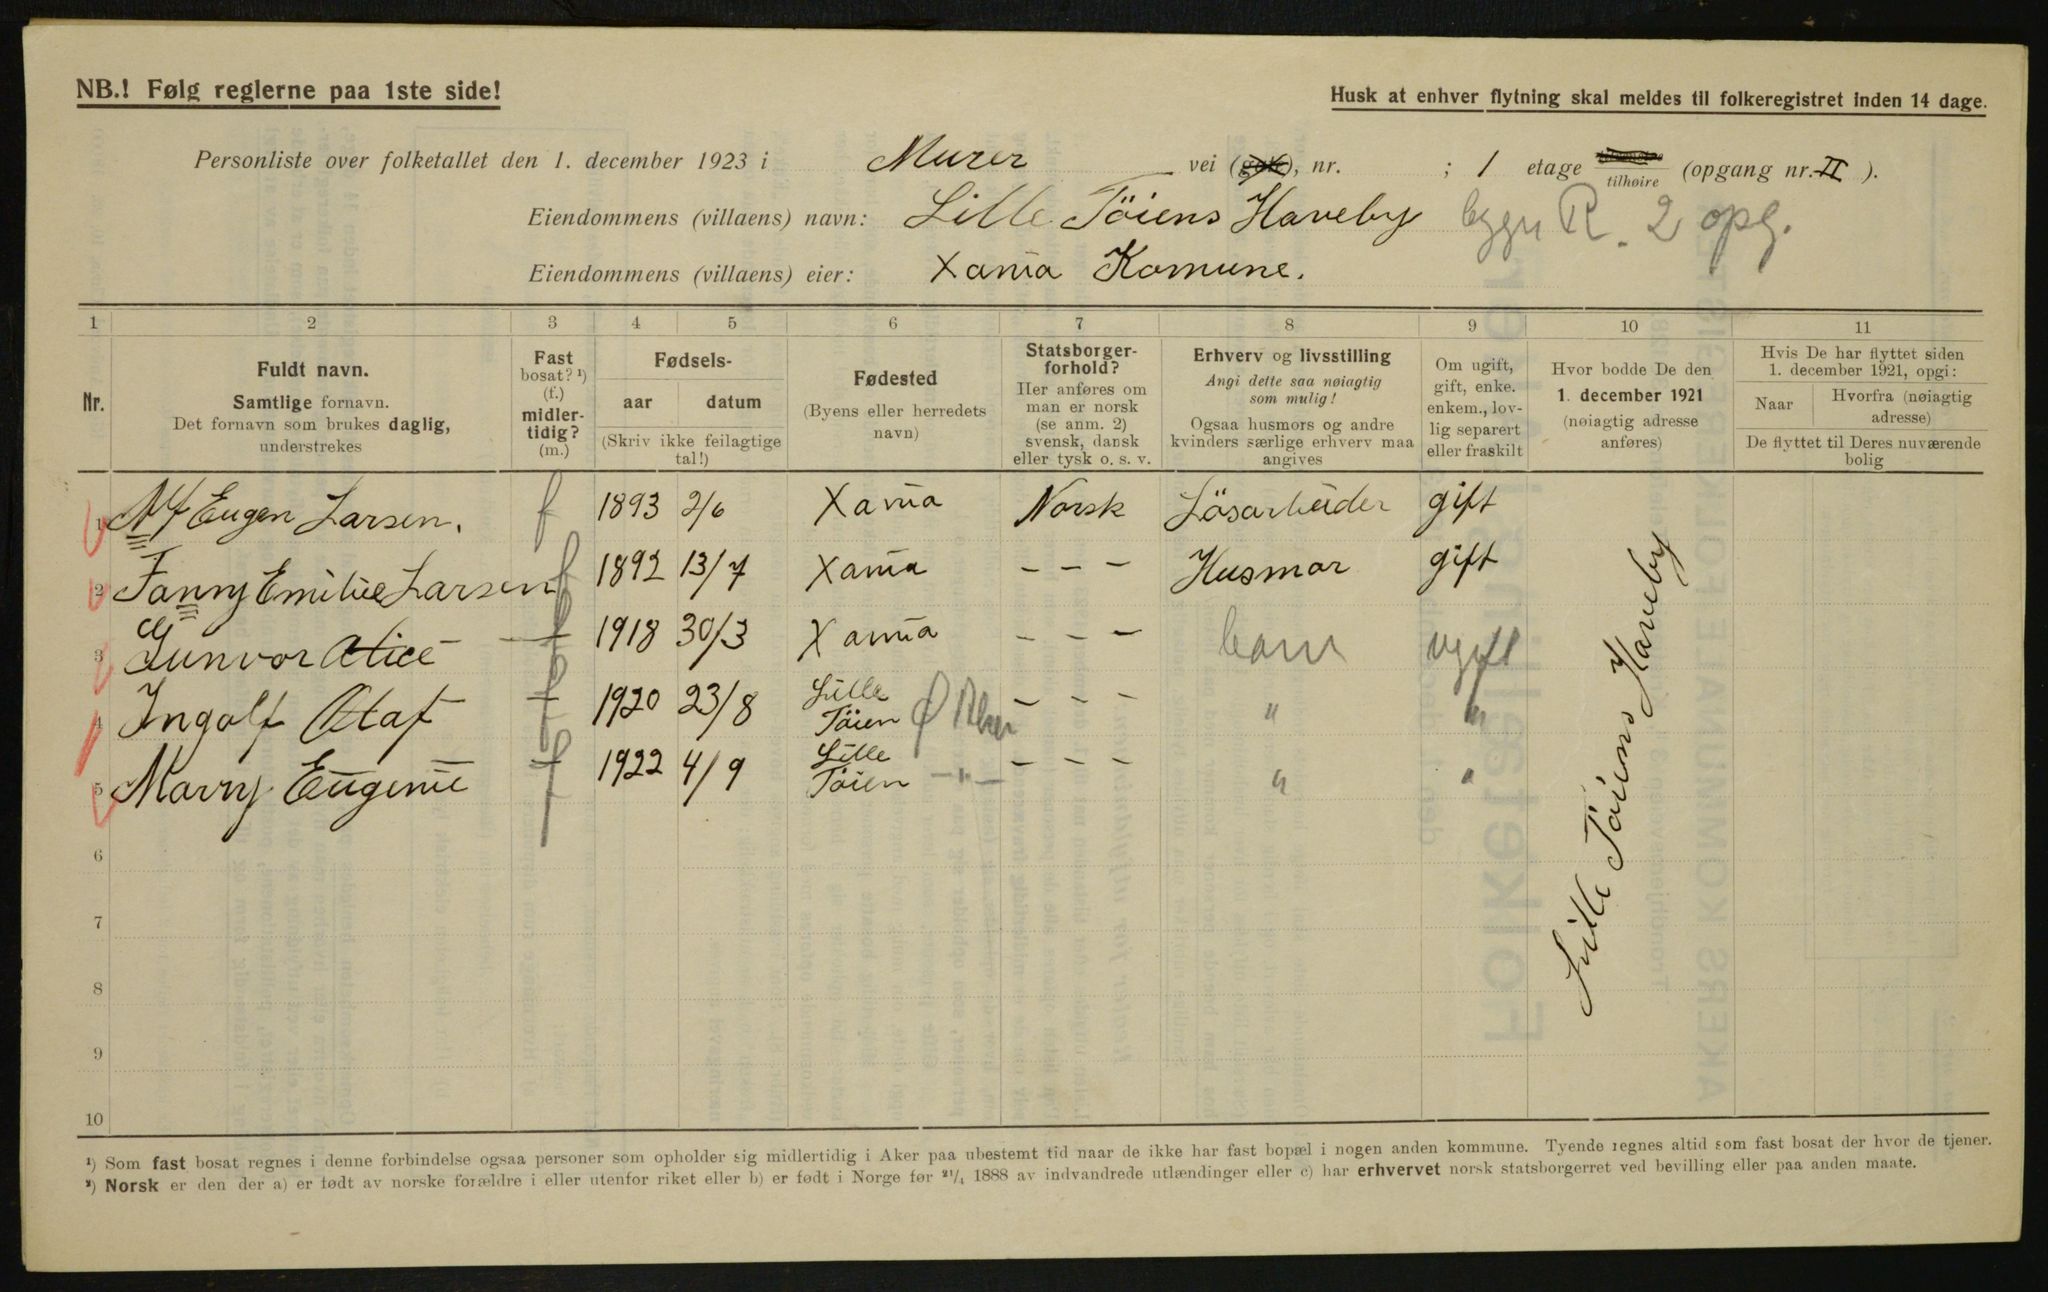 NB.! Følg reglerne paa 1ste side!
Husk at enhver flytning skal meldes til folkeregistret inden 14 dage.
Personliste over folketallet den 1. december 1923 i Murer vei (gate), nr. ; 1 etage tilhøire (opgang nr. II ).
Eiendommens (villaens) navn: Lille Töiens Haveby bygn R. 2 opg.
Eiendommens (villaens) eier: Xania Komune.
1 2 3 4 5 6 7 8 9 10 11
Nr.
Fuldt navn.
Samtlige fornavn.
Det fornavn som brukes daglig,
understrekes
Fast
bosat? ¹)
(f.)
midler-
tidig?
(m.)
Fødsels-
aar datum
(Skriv ikke feilagtige
tal!)
Fødested
(Byens eller herredets
navn)
Statsborger-
forhold?
Her anføres om
man er norsk
(se anm. 2)
svensk, dansk
eller tysk o. s. v.
Erhverv og livsstilling
Angi dette saa nøiagtig
som mulig!
Ogsaa husmors og andre
kvinders særlige erhverv maa
angives
Om ugift,
gift, enke.
enkem., lov-
lig separert
eller fraskilt
Hvor bodde De den
1. december 1921
(nøiagtig adresse
anføres)
Hvis De har flyttet siden
1. december 1921, opgi:
Naar Hvorfra (nøiagtig
adresse)
De flyttet til Deres nuværende
bolig
1 Alf Eugen Larsen. f 1893 2/6 Xania Norsk Lösarbeider gift
2 Fanny Emilie Larsen f 1892 13/7 Xania – – – Husmor gift
3 Gunvor Alice — f 1918 30/3 Xania – – – barn ugift
4 Ingolf Olaf – f 1920 23/8 Lille Töien Ø Aker – – – " "
5 Marry Eugenie = f 1922 4/9 Lille Töien —"— – – – " "
Lille Töiens Haveby
6
7
8
9
10
¹) Som fast bosat regnes i denne forbindelse ogsaa personer som opholder sig midlertidig i Aker paa ubestemt tid naar de ikke har fast bopæl i nogen anden kommune. Tyende regnes altid som fast bosat der hvor de tjener.
²) Norsk er den der a) er født av norske forældre i eller utenfor riket eller b) er født i Norge før ²¹/₄ 1888 av indvandrede utlændinger eller c) har erhvervet norsk statsborgerret ved bevilling eller paa anden maate.